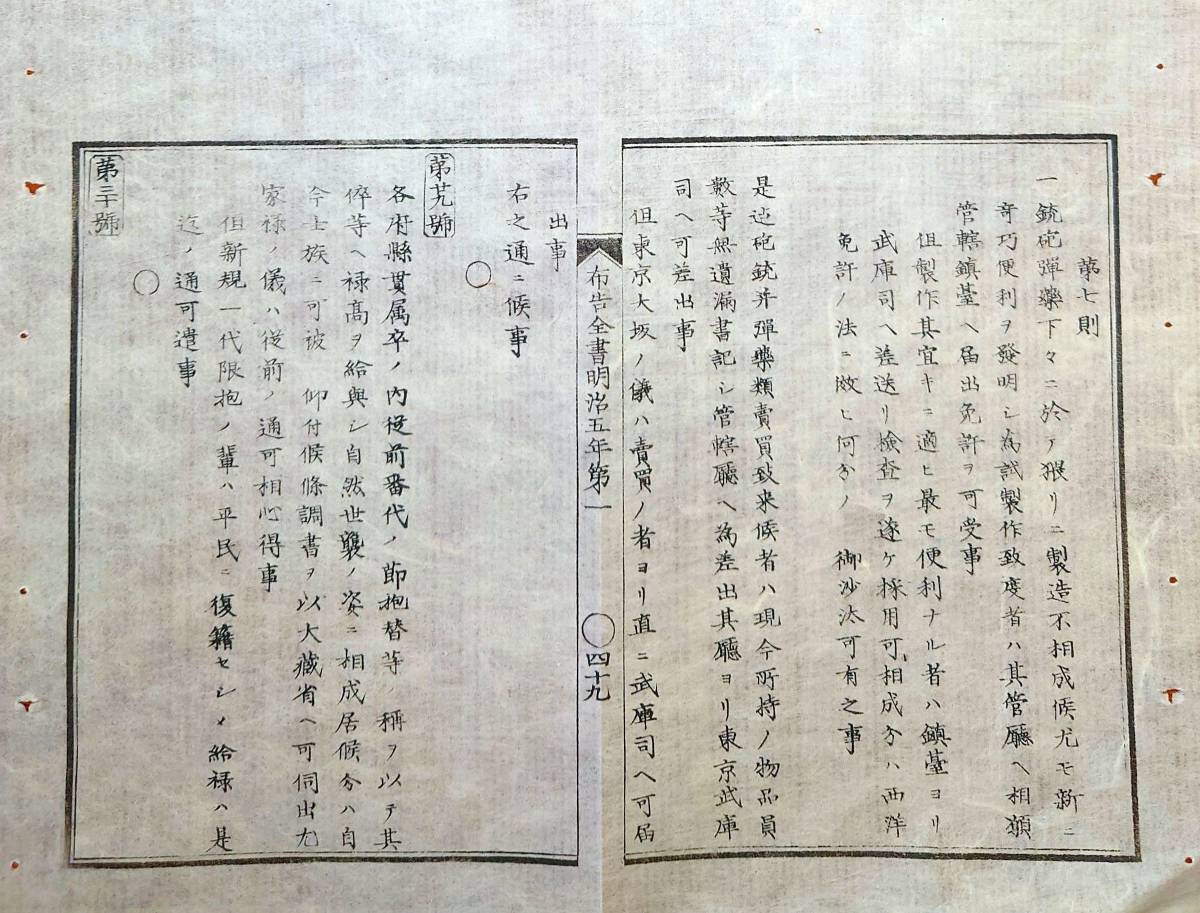 第七則
一銃砲彈藥下々ニ於テ猥リニ製造不相成候尤モ新ニ
奇巧便利ヲ發明シ為試製作致度者ハ其管廳ヘ相願
管轄鎮臺ヘ届出免許ヲ可受事
但製作其宜キニ適ヒ最モ便利ナル者ハ鎮臺ヨリ
武庫司ヘ差送リ檢査ヲ遂ケ採用可相成分ハ西洋
免許ノ法ニ效ヒ何分ノ 御沙汰可有之事
是迠砲銃并彈藥類賣買致来候者ハ現今所持ノ物品員
數等無遺漏書記シ管轄廳ヘ為差出其廳ヨリ東京武庫
司ヘ可差出事
但東京大坂ノ儀ハ賣買ノ者ヨリ直ニ武庫司ヘ可届
布告全書明治五年第一 〇四十九
出事
右之通ニ候事
〇
第廿九號
各府縣貫属卒ノ内従前番代ノ節抱替等ノ稱ヲ以テ其
倅等ヘ禄高ヲ給與シ自然世襲ノ姿ニ相成居候分ハ自
今士族ニ可被 仰付候條調書ヲ以大藏省ヘ可伺出尤
家禄ノ儀ハ従前ノ通可相心得事
但新規一代限抱ノ輩ハ平民ニ復籍セシメ給禄ハ是
迠ノ通可遣事
〇
第三十號